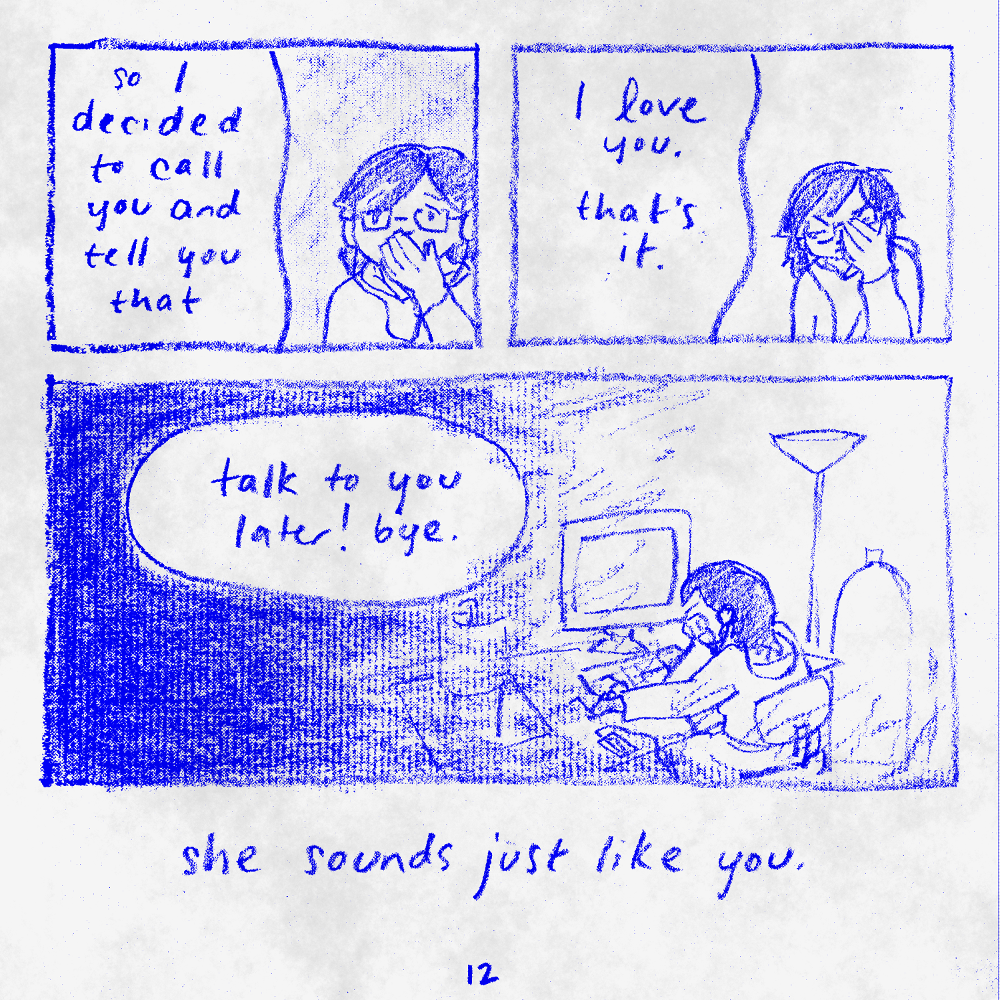 so I
decided
to call
you and
tell you
that
I love
you.
that's
it.
talk to you
later! bye.
she sounds just like you.
12